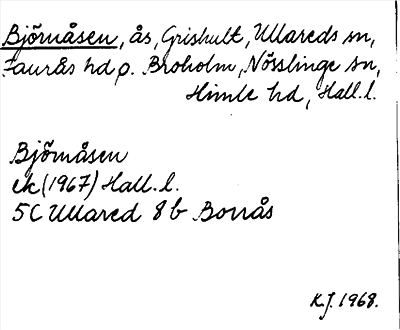 Björnåsen, ås, Grishult, Ullareds sn,
Faurås hd o. Broholm, Nösslinge sn,
Himle hd, Hall. l.
Björnåsen
ek (1967) Hall. l.
5C Ullared 8b Borrås
K.J. 1968.